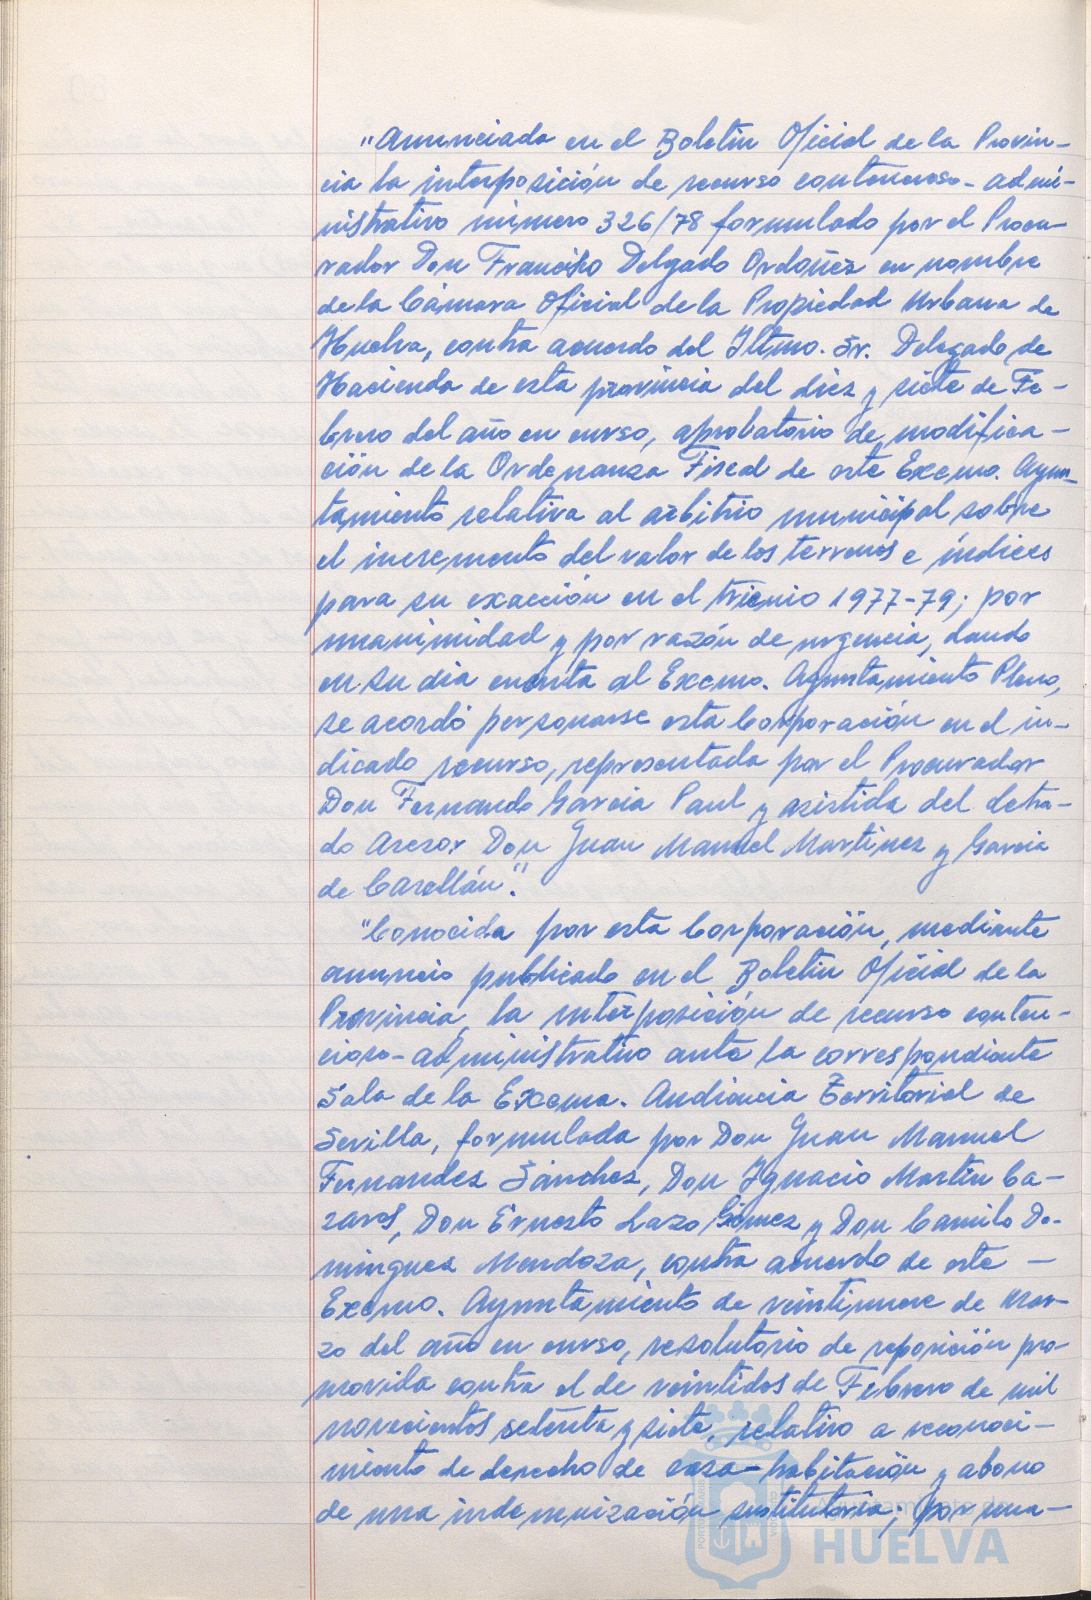 "Anunciada en el Boletin Oficial de la Provin-
cia la interposición de recurso contencioso-admi-
nistrativo número 326/78 formulado por el Procu-
rador Don Francisco Delgado Ordoñez en nombre
de la Cámara Oficial de la Propiedad Urbana de
Huelva, contra acuerdo del Iltmo. Sr. Delegado de
Hacienda de esta provincia del diez y siete de Fe-
brero del año en curso, aprobatorio de modifica-
ción de la Ordenanza Fiscal de este Excmo. Ayun-
tamiento relativa al arbitrio municipal sobre
el incremento del valor de los terrenos e índices
para su exacción en el trienio 1977-79; por
unanimidad y por razón de urgencia, dando
en su dia cuenta al Excmo. Ayuntamiento Pleno,
se acordó personarse esta Corporación en el in-
dicado recurso, representada por el Procurador
Don Fernando Garcia Paul y asistida del Letra-
do Asesor Don Juan Manuel Martinez y Garcia
de Casellán".
"Conocida por esta Corporación, mediante
anuncio publicado en el Boletin Oficial de la
Provincia, la interposición de recurso conten-
cioso-administrativo ante la correspondiente
Sala de la Excma. Audiencia Territorial de
Sevilla, formulada por Don Juan Manuel
Fernandez Sánchez, Don Ignacio Martin Ca-
zaros, Don Ernesto Lazo Gómez y Don Camilo Do-
minguez Mendoza, contra acuerdo de este -
Excmo. Ayuntamiento de veintinueve de Mar-
zo del año en curso, resolutorio de reposición pro-
movida contra el de veintidos de Febrero de mil
novecientos setenta y siete, relativo a reconoci-
miento de derecho de casa-habitación y abono
de una indemnización sustitutoria; por una-
Ayuntamiento de
HUELVA